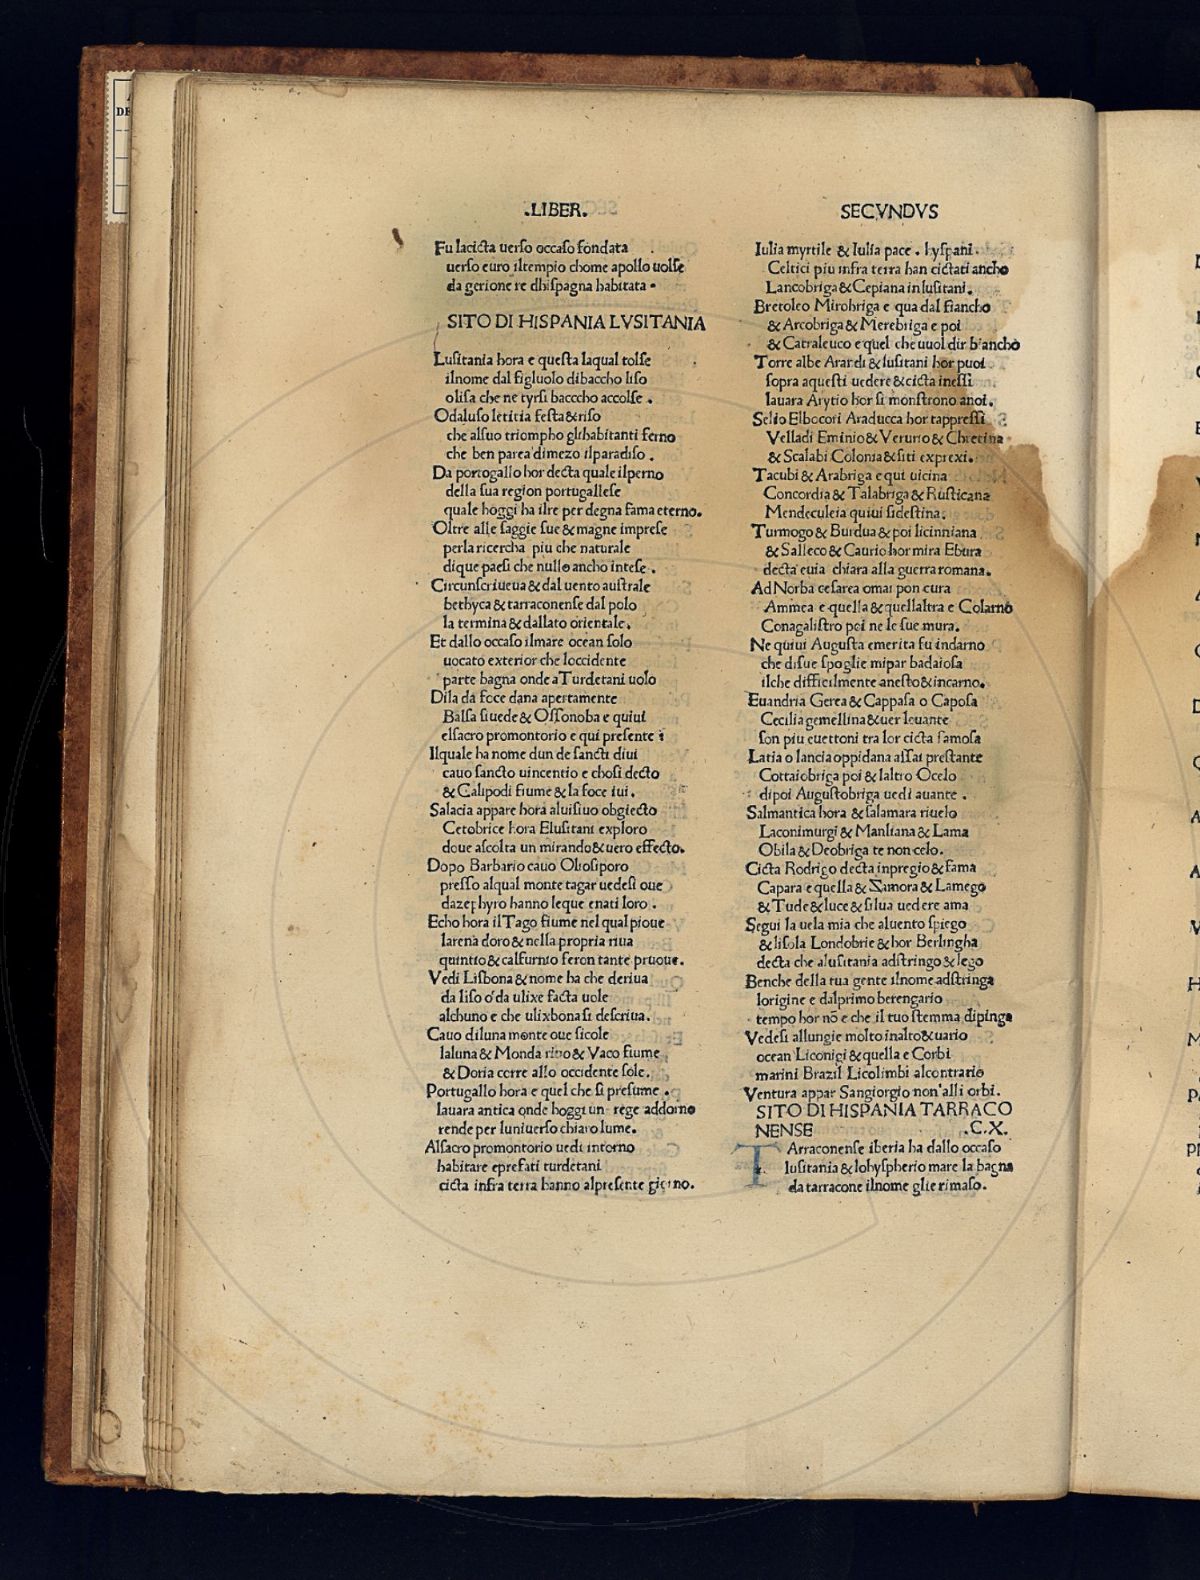 .LIBER.
Fu lacicta uerſo occaſo fondata
uerſo euro iltempio chome apollo uolſe
da gerione re dhiſpagna habitata
SITO DI HISPANIA LVSITANIA
Luſitania hora e queſta laqual tolſe
ilnome dal figluolo dibaccho liſo
oliſa che ne tyrſi bacccho accolſe .
Odaluſo letitia feſta&riſo
che alſuo triompho glihabitanti ferno
che ben parea dimezo ilparadiſo .
Da portogallo hor decta quale ilperno
della ſua region portugalleſe
quale hoggi ha ilre per degna fama eterno.
Oltre alle ſaggie ſue & magne impreſe
perla ricercha piu che naturale
dique paeſi che nullo ancho inteſe .
Circunſcriueua & dal uento auſtrale
bethyca & tarraconenſe dal polo
la termina & dallato orientale.
Et dallo occaſo ilmare ocean ſolo
uocato exterior che loccidente
parte bagna onde a Turdetani uolo
Dila da foce dana apertamente
Balſa ſiuede & Oſſonoba e quiui
elſacro promontorio e qui preſente i
Ilquale ha nome dun de ſancti diui
cauo ſancto uincentio e choſi decto
& Calipodi fiume & la foce iui .
Salacia appare hora aluiſiuo obgiecto
Cetobrice hora Eluſitani exploro
doue aſcolta un mirando&uero effecto.
Dopo Barbario cauo Olioſiporo
preſſo alqual monte tagar uedeſi oue
dazephyro hanno leque enati loro .
Echo hora il Tago fiume nel qual pioue
larena doro & nella propria riua
quintio&calfurnio feron tante pruoue.
Vedi Liſbona & nome ha che deriua
da liſo o da ulixe facta uole
alchuno e che ulixbona ſi deſcriua.
Cauo diluna monte oue ſicole
laluna & Monda riuo & Vaco fiume
& Doria corre allo occidente ſole.
Portugallo hora e quel che ſi preſume .
lauara antica onde hoggi un rege addorno
rende per luniuerſo chiaro lume.
Alſacro promontorio uedi intorno
habitare eprefati turdetani
cicta infra terra hanno alpreſente giorno.
SECVNDVS
Iulia myrtile & Iulia pace . hyſpani
Celtici piu infra terra han cictati ancho
Lancobriga&Cepiana in luſitani.
Bretoleo Mirobriga e qua dal fiancho
& Arcobriga & Merebriga e poi
& Catraleuco e quel che uuol dir biancho
Torre albe Arardi & luſitani hor puoi
ſopra aqueſti uedere & cicta ineſſi
lauara Arytio hor ſi monſtrono anoi.
Selio Elbocori Araducca hor tappreſſi
Velladi Eminio & Verurio & Chretina
& Scalabi Colonia & ſiti exprexi.
Tacubi & Arabriga e qui uicina
Concordia & Talabriga & Ruſticana
Mendeculeia quiui ſideſtina.
Turmogo & Burdua & poi licinniana
& Salleco & Caurio hor mira Ebura
decta euia chiara alla guerra romana.
Ad Norba ceſarea omai pon cura
Ammea e quella & quellaltra e Colarno
Conagaliſtro poi ne le ſue mura.
Ne quiui Auguſta emerita fu indarno
che diſue ſpoglie mipar badaioſa
ilche difficilmente aneſto & incarno.
Euandria Gerea & Cappaſa o Capoſa
Cecilia gemellina&uer leuante
ſon piu euettoni tra lor cicta famoſa
Latia o lancia oppidana aſſai preſtante
Cottaiobriga poi & laltro Ocelo
dipoi Auguſtobriga uedi auante .
Salmantica hora & ſalamara riuelo
Laconimurgi & Manliana & Lama
Obila & Deobriga te non celo.
Cicta Rodrigo decta inpregio & fama
Capara e quella & Zamora & Lamego
& Tude & luce & ſilua uedere ama
Segui la uela mia che aluento ſpiego
& liſola Londobrie & hor Berlingha
decta che aluſitania adſtringo & lego
Benche della tua gente ilnome adſtringa
lorigine e dalprimo berengario
tempo hor nõ e che il tuo ſtemma dipinga
Vedeſi allungie molto inalto&uario
ocean Liconigi & quella e Corbi
marini Brazil Licolimbi alcontrario
Ventura appar Sangiorgio non alli orbi.
SITO DI HISPANIA TARRACO
NENSE .C.X.
TArraconenſe iberia ha dallo occaſo
luſitania & lohyſpherio mare la bagna
da tarracone ilnome glie rimaſo.